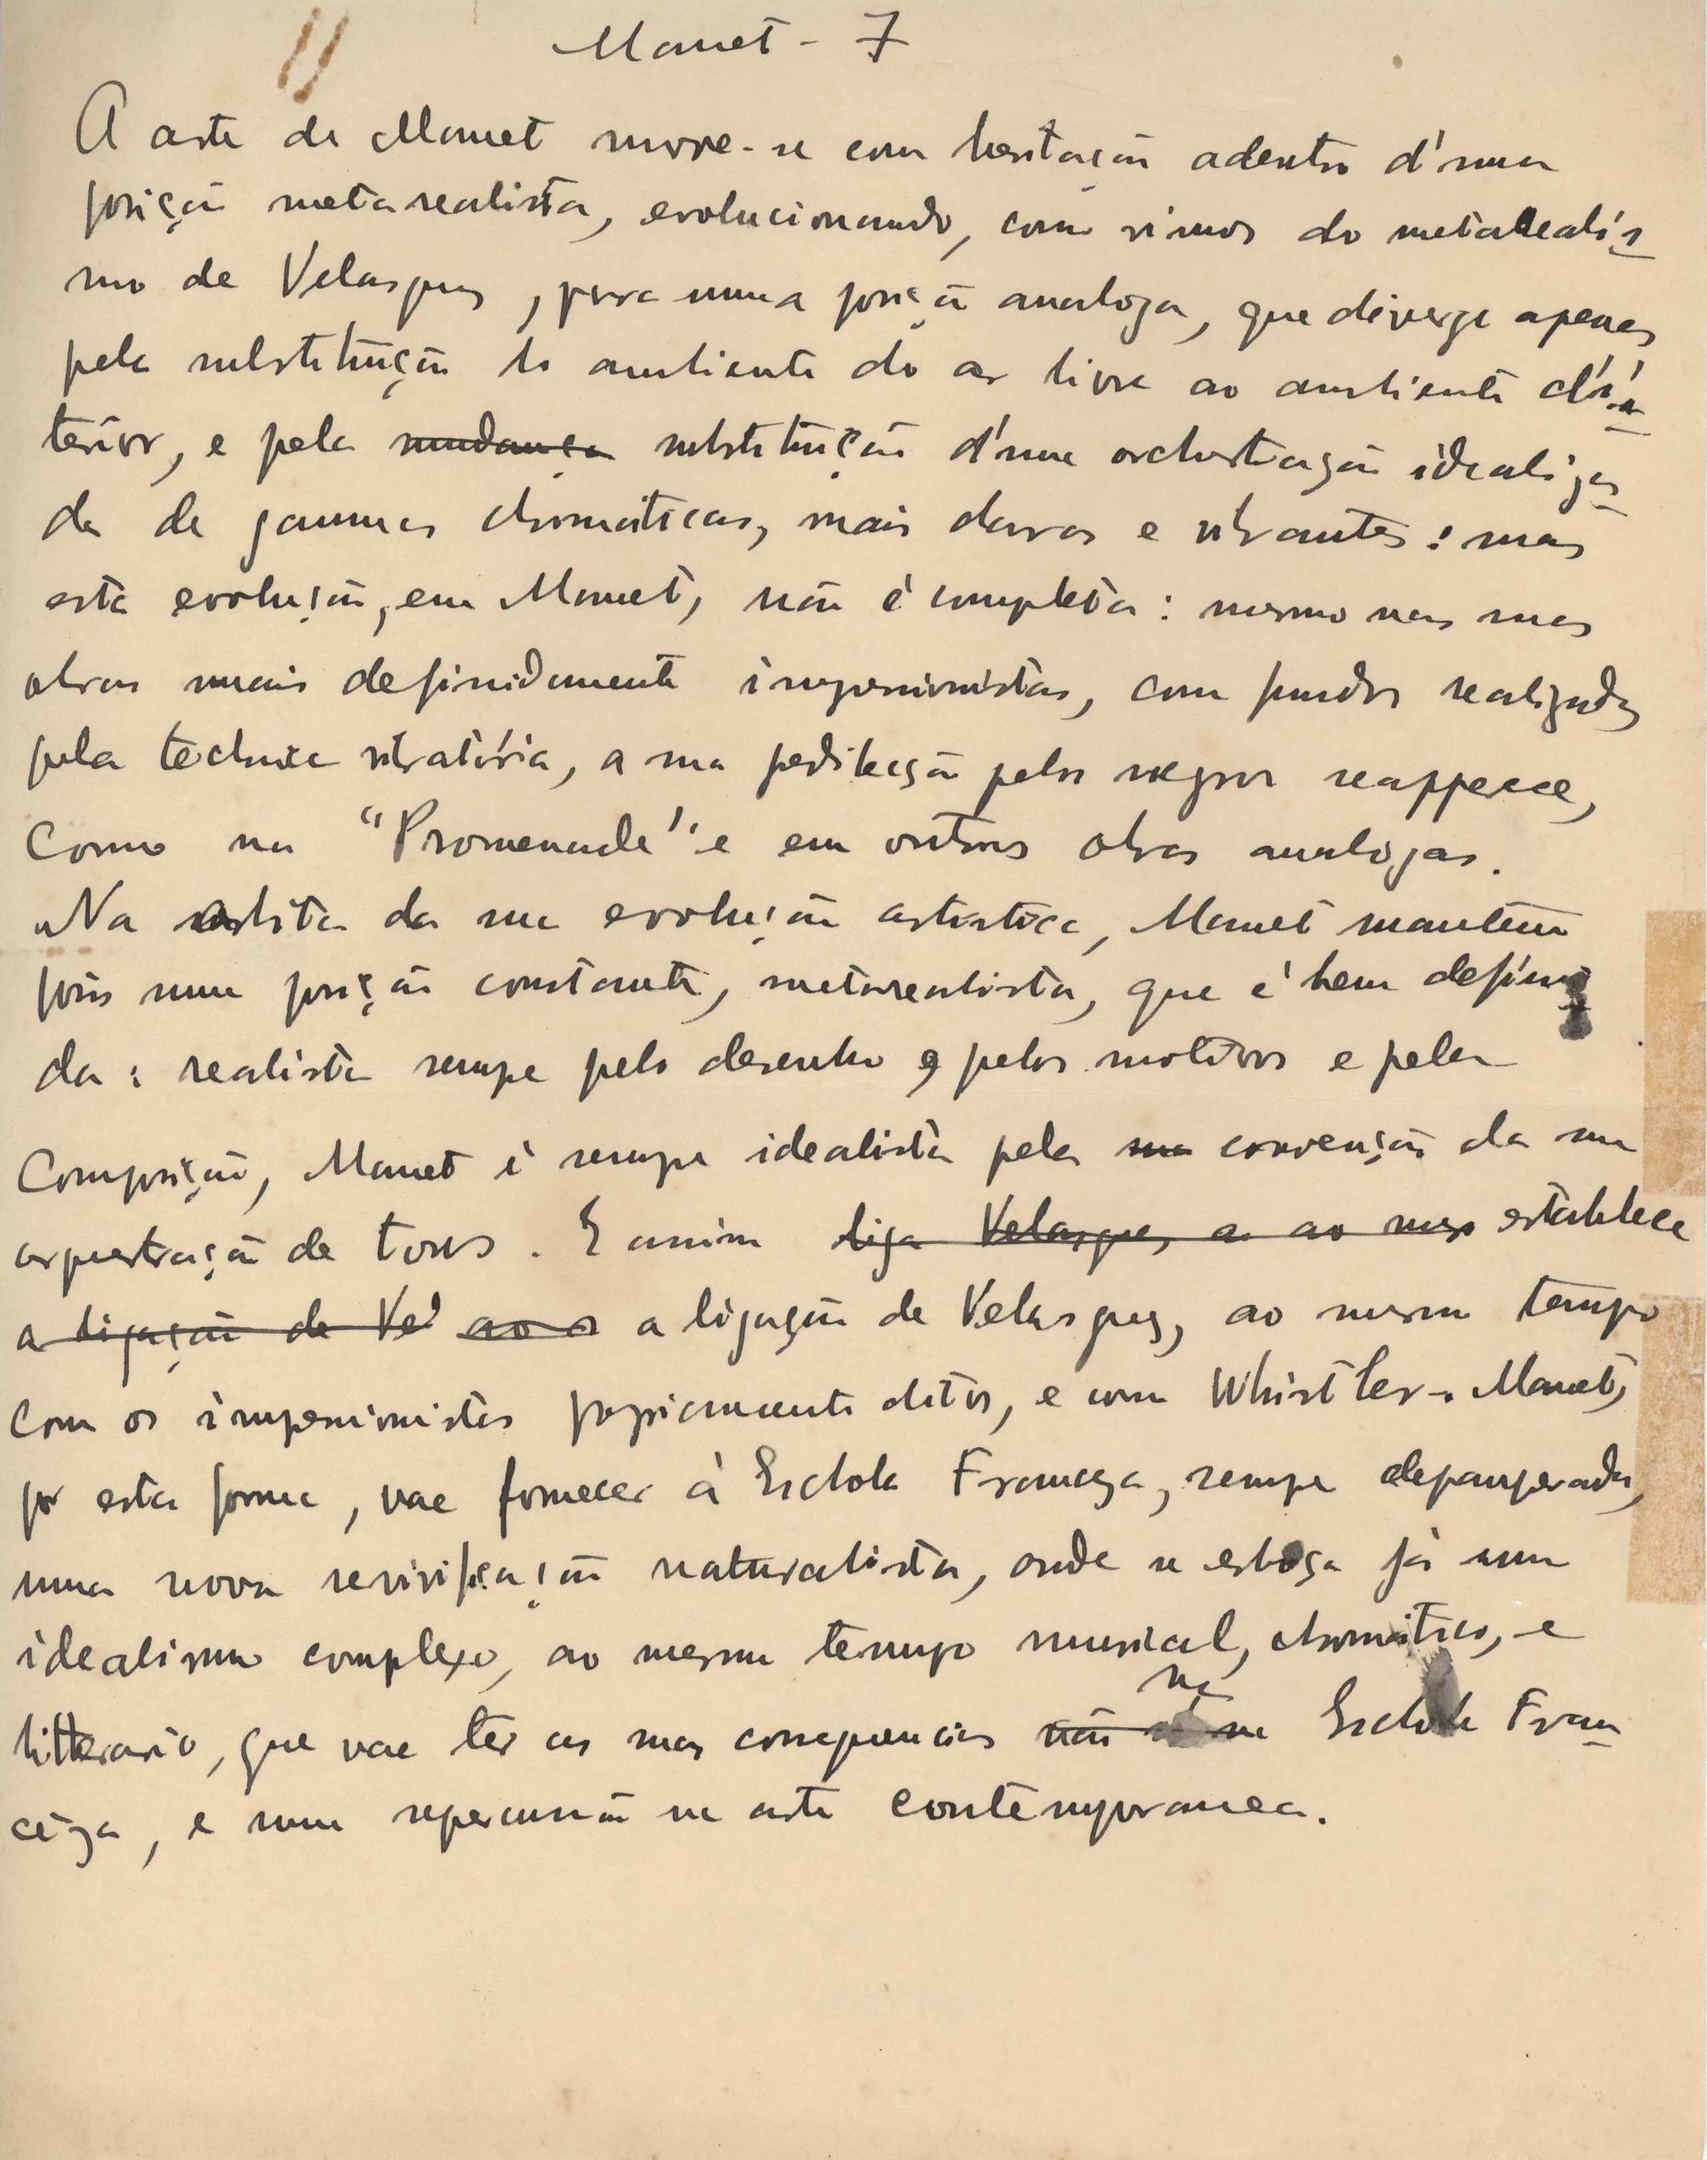 Manet - 7
A arte de Manet move-se com hesitação adentro d'uma
posição metarealista, evolucionando, como vimos do metarealis
mo de Velasquez, para uma posição analoga, que diverge apenas
pela substituição do ambiente do ar livre ao ambiente d'in
terior, e pela mudança substituição d'uma orchestração idealiza
da de gammas chromaticas, mais claras e vibrantes: mas
esta evolução, em Manet, não é completa: mesmo nas suas
obras mais definidamente impressionistas, com fundos realizados
pela technica vibratória, a sua predileção pelos negros reapparece,
como na "Promenade" e em outras obras analogas.
Na orbita da sua evolução artistica, Manet mantem
pois uma posição constante, metarealista, que é bem defini
da: realista sempre pelo desenho e pelos motivos e pela
Composição, Manet é sempre idealista pela sua convenção da sua
orquestração de tons. E assim liga Velasquez a ao mesmo establece
a ligação de Vel ao a ligação de Velasquez, ao mesmo tempo
com os impressionistas propriamente ditos, e com Whistler. Manet,
por esta forma, vae fornecer á Eschola Franceza, sempre depauperada,
uma nova revivificação naturalista, onde se esboça já um
idealismo complexo, ao mesmo tempo musical, chromatico, e
litterario, que vae ter as suas consequencias não só na na Eschola Fran
ceza, e uma repercussão na arte contemporanea.